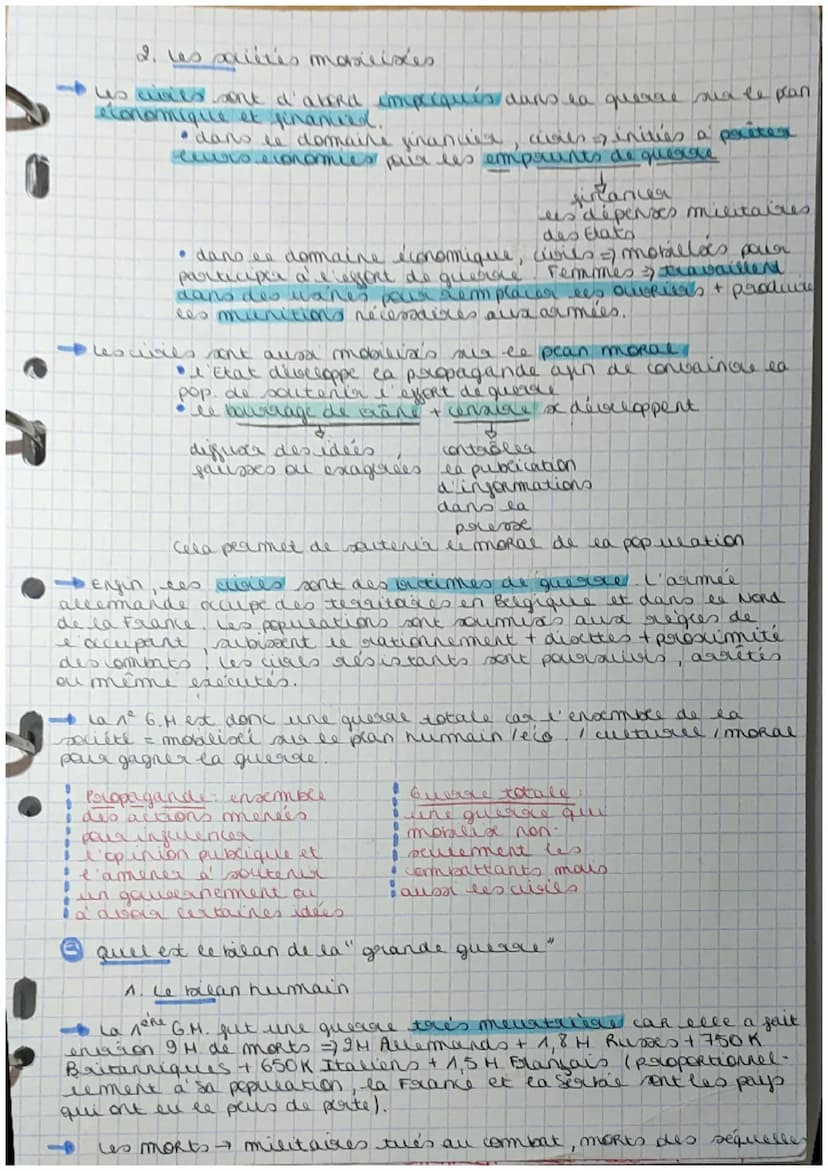 2. Les sociétés mobilisées
→ Les civils sont d'abord impliqués dans la guerre sur le plan
économique et financier.
• dans le domaine financier, civils => initiés à prêter
leurs économies par les emprunts de guerre
↓
financer
les dépenses militaires
des Etats
• dans le domaine économique, civils => mobilisés pour
participer à l'effort de guerre. Femmes => travaillent
dans des usines pour remplacer les ouvriers + produire
les munitions nécessaires aux armées.
→ Les civils sont aussi mobilisés sur le plan moral
• l'Etat développe la propagande afin de convaincre la
pop. de soutenir l'effort de guerre
• le bourrage de crâne + censure se développent
↓ ↓
diffuser des idées contrôler
fausses ou exagérées la publication
d'informations
dans la
presse
Cela permet de soutenir le moral de la population
→ Enfin, les civils sont des victimes de guerre. L'armée
allemande occupe des territoires en Belgique et dans le Nord
de la France. Les populations sont soumises aux règles de
l'occupant, subissent le rationnement + disettes + proximité
des combats. Les civils résistants sont poursuivis, arrêtés
ou même exécutés.
→ La 1e G.M est donc une guerre totale car l'ensemble de la
société = mobilisée sur le plan humain / éco. / culturel / moral
pour gagner la guerre.
Propagande: ensemble
des actions menées
pour influencer
l'opinion publique et
l'amener à soutenir
un gouvernement ou
à avoir certaines idées
Guerre totale:
une guerre qui
mobilise non-
seulement les
combattants mais
aussi les civils
② quel est le bilan de la "grande guerre"
1. Le bilan humain
→ La 1ère G.M. fut une guerre très meurtrière car elle a fait
environ 9M de morts => 2M Allemands + 1,8 M Russes + 750K
Britanniques + 650K Italiens + 1,5M Français (proportionnel-
lement à sa population, la France et la Serbie sont les pays
qui ont eu le plus de perte).
→ Les morts → militaires tués au combat, morts des séquelles